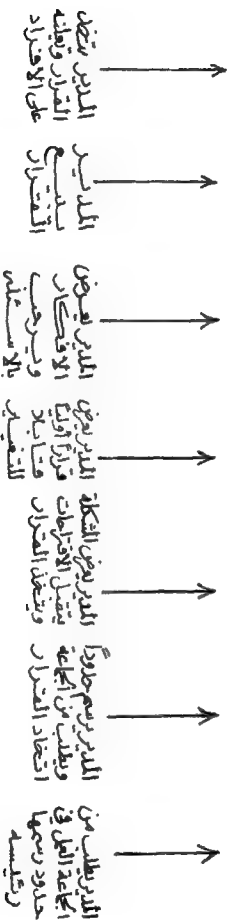 المدير يتخذ
القرار ويعلنه
على الافراد
المديــر
يبيــع
القــرار
المدير يعرض
الافكــار
ويرحب
بالاسئلة
المدير يعرض
قراراً أولياً
قابلا
للتغيير
المدير يعرض المشكلة
يتقبل الاقتراحات
ويتخذ القرار
المدير يرسم حدوداً
ويطلب من الجماعة
اتخاذ القرار
المدير يطلب من
الجماعة العمل في
حدود رسمها
رئيسه